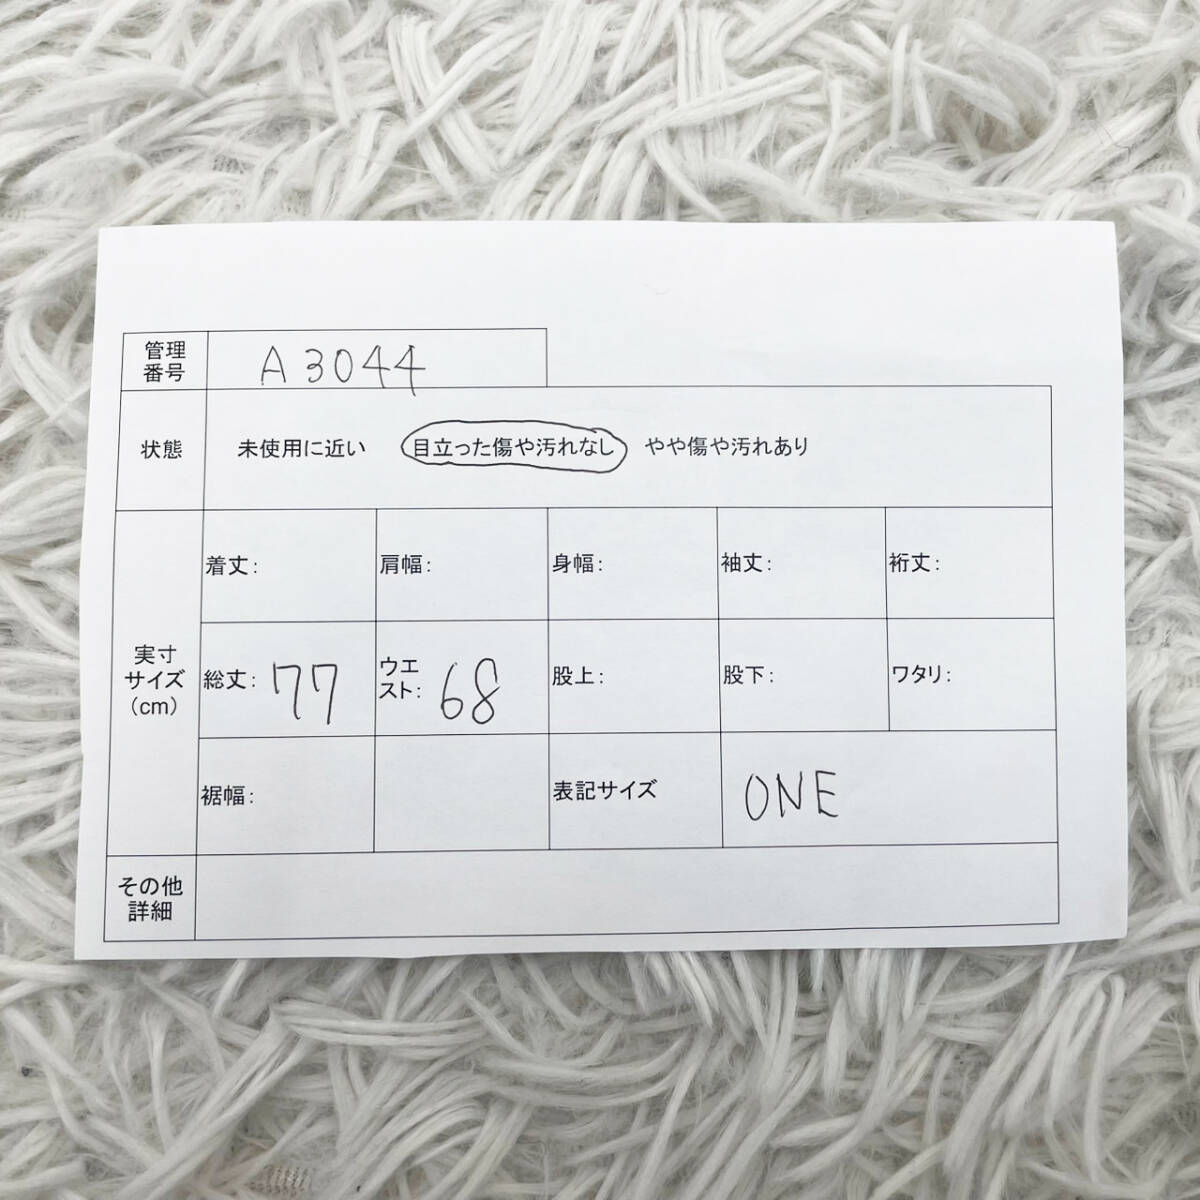 管理
番号
A3044
状態
未使用に近い 目立った傷や汚れなし やや傷や汚れあり
実寸
サイズ
(cm)
着丈: 肩幅: 身幅: 袖丈: 裄丈:
総丈: 77
ウエ
スト: 68
股上: 股下: ワタリ:
裾幅: 表記サイズ ONE
その他
詳細